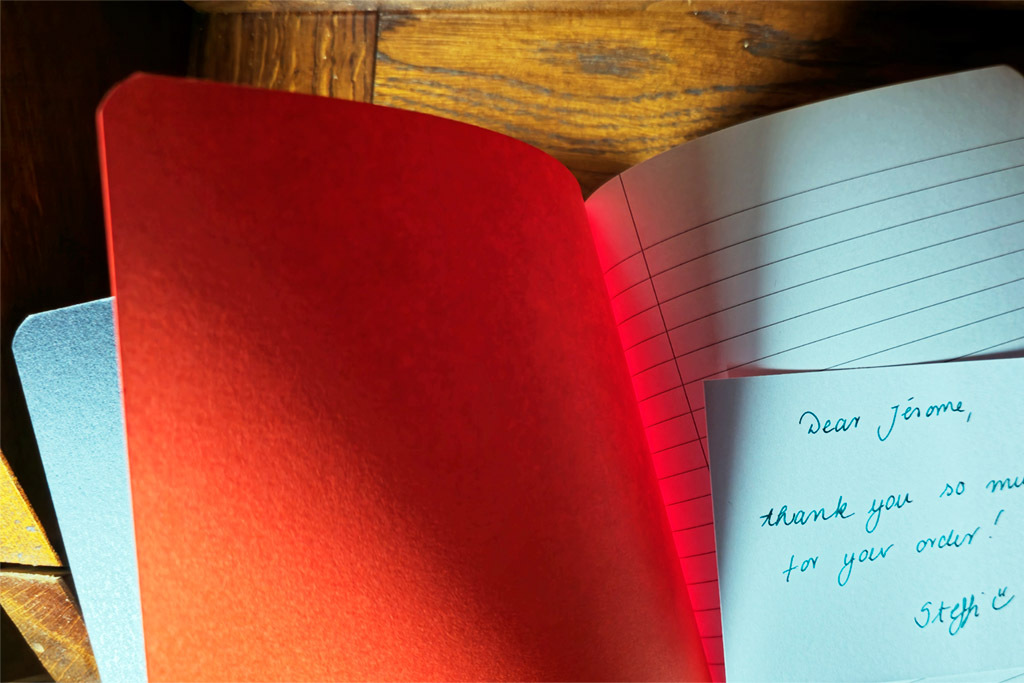 Dear Jérome,
thank you so mu
for your order!
Steffi